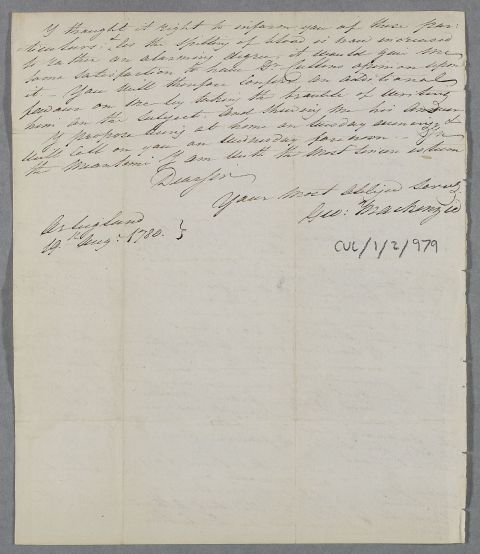 I thought it right to inform you of these par:
ticulars: as the spitting of blood is have increased
to rather an alarming degree, it would give me
some satisfaction to have Dr Cullens opinion upon
it - You will therefore confer an additional
favour on me by taking the trouble of writing
him on the subject, and shewing me his answer
I propose being at home on Sunday evening &
will call on you on Wednesday forenoon - In
the meantime I am with the most sincere esteem
Dear Sir
Your most obliged Servt
Geo: Mackenzie
19th Augt 1780.
CUL/1/2/979